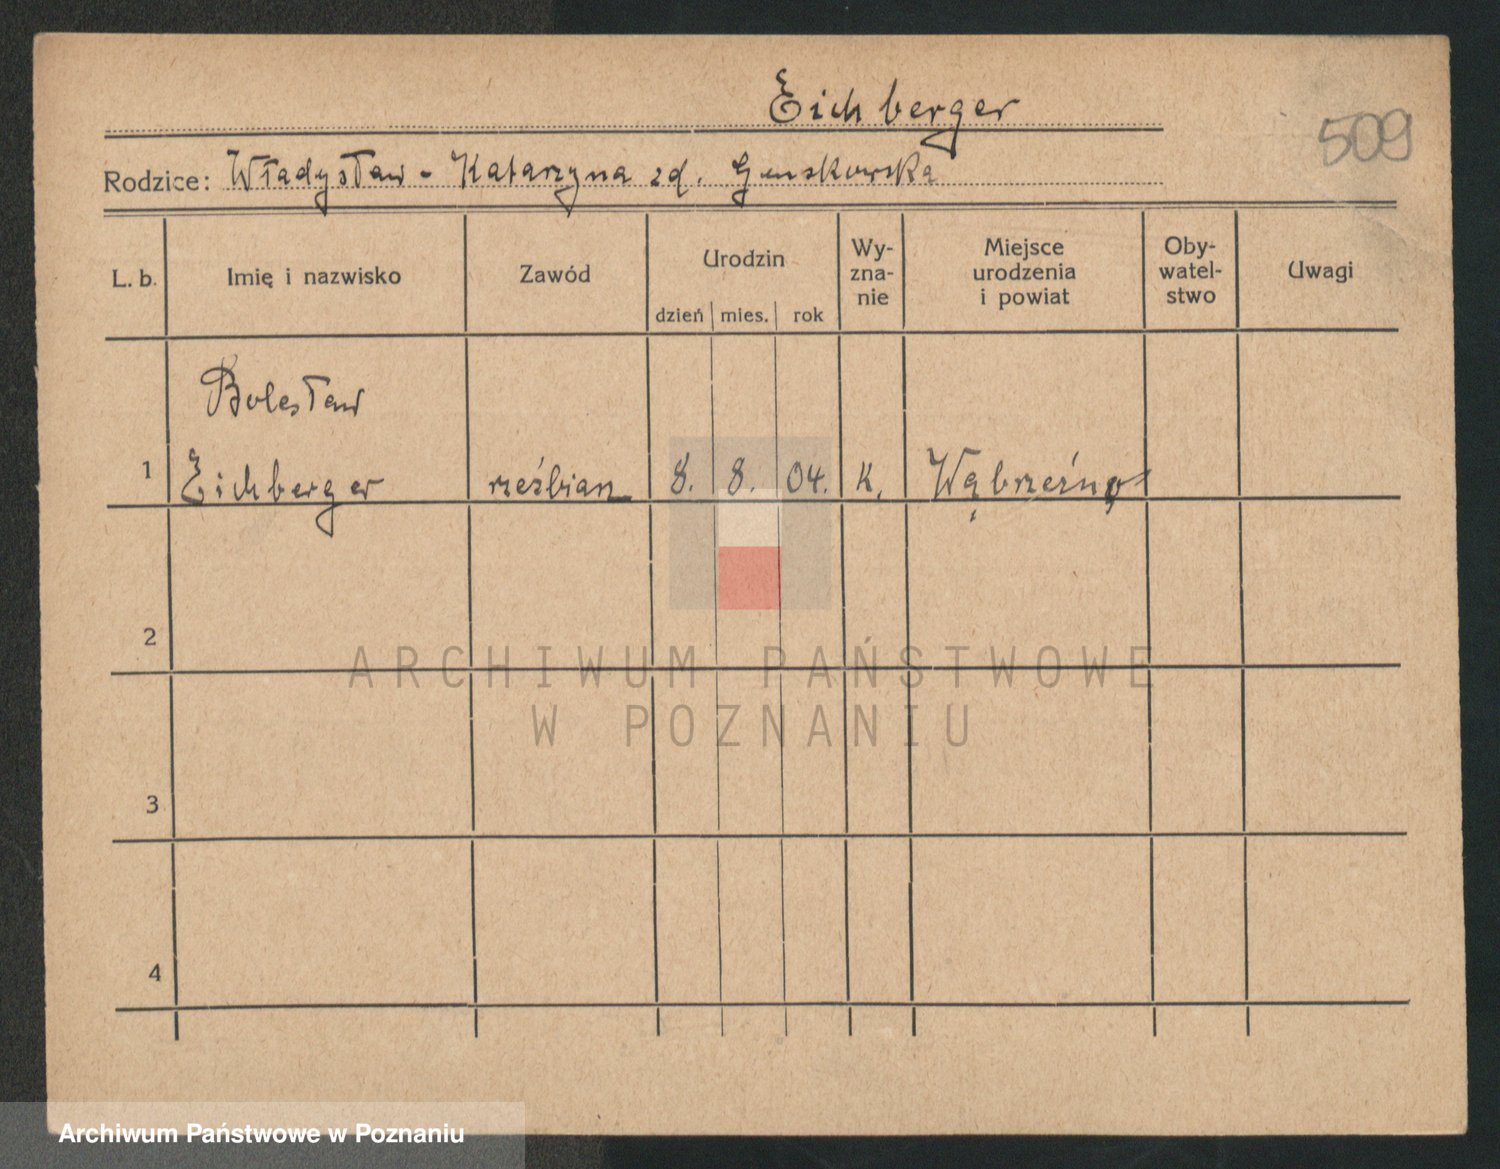 Eichberger
509
Rodzice: Władysław - Katarzyna zd.
L. b. Imię i nazwisko Zawód Urodzin dzień mies. rok Wy-zna-nie Miejsce urodzenia i powiat Oby-watel-stwo Uwagi
Bolesław
1 Eichberger rzeźbiarz 8. 8. 04. K. Wąbrzeźno
2
3
4
ARCHIWUM PAŃSTWOWE
W POZNANIU
Archiwum Państwowe w Poznaniu